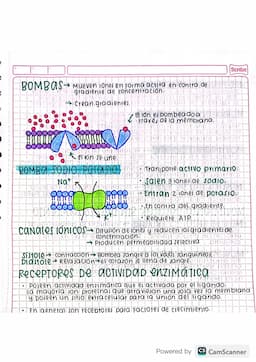 Scribe
BOMBAS → Mueven iones en forma activa en contra de
gradiente de concentración.
→ Crean gradientes
El ion es bombeado a
través de la membrana.
El ion se une
BOMBA SODIO POTASIO
• Transporte activo primario
Na⁺
• Salen 3 iones de sodio.
• Entran 2 iones de potasio.
• En contra del gradiente.
K⁺
• Requiere ATP
CANALES IONICOS → Difusión de iones y reducen el gradiente de
concentración.
→ Producen permeabilidad selectiva
SISTOLE → contracción → Bombea sangre a los vasos sanguíneos
DIASTOLE → Relajación → el corazón se llena de sangre
RECEPTORES DE ACTIVIDAD ENZIMÁTICA
• Poseen actividad enzimática que es activada por el ligando.
la mayoría son proteínas que atraviesan una sola vez la membrana
y poseen un sitio extracelular para la unión del ligando.
• En general son receptores para factores de crecimiento.
Powered by CS CamScanner